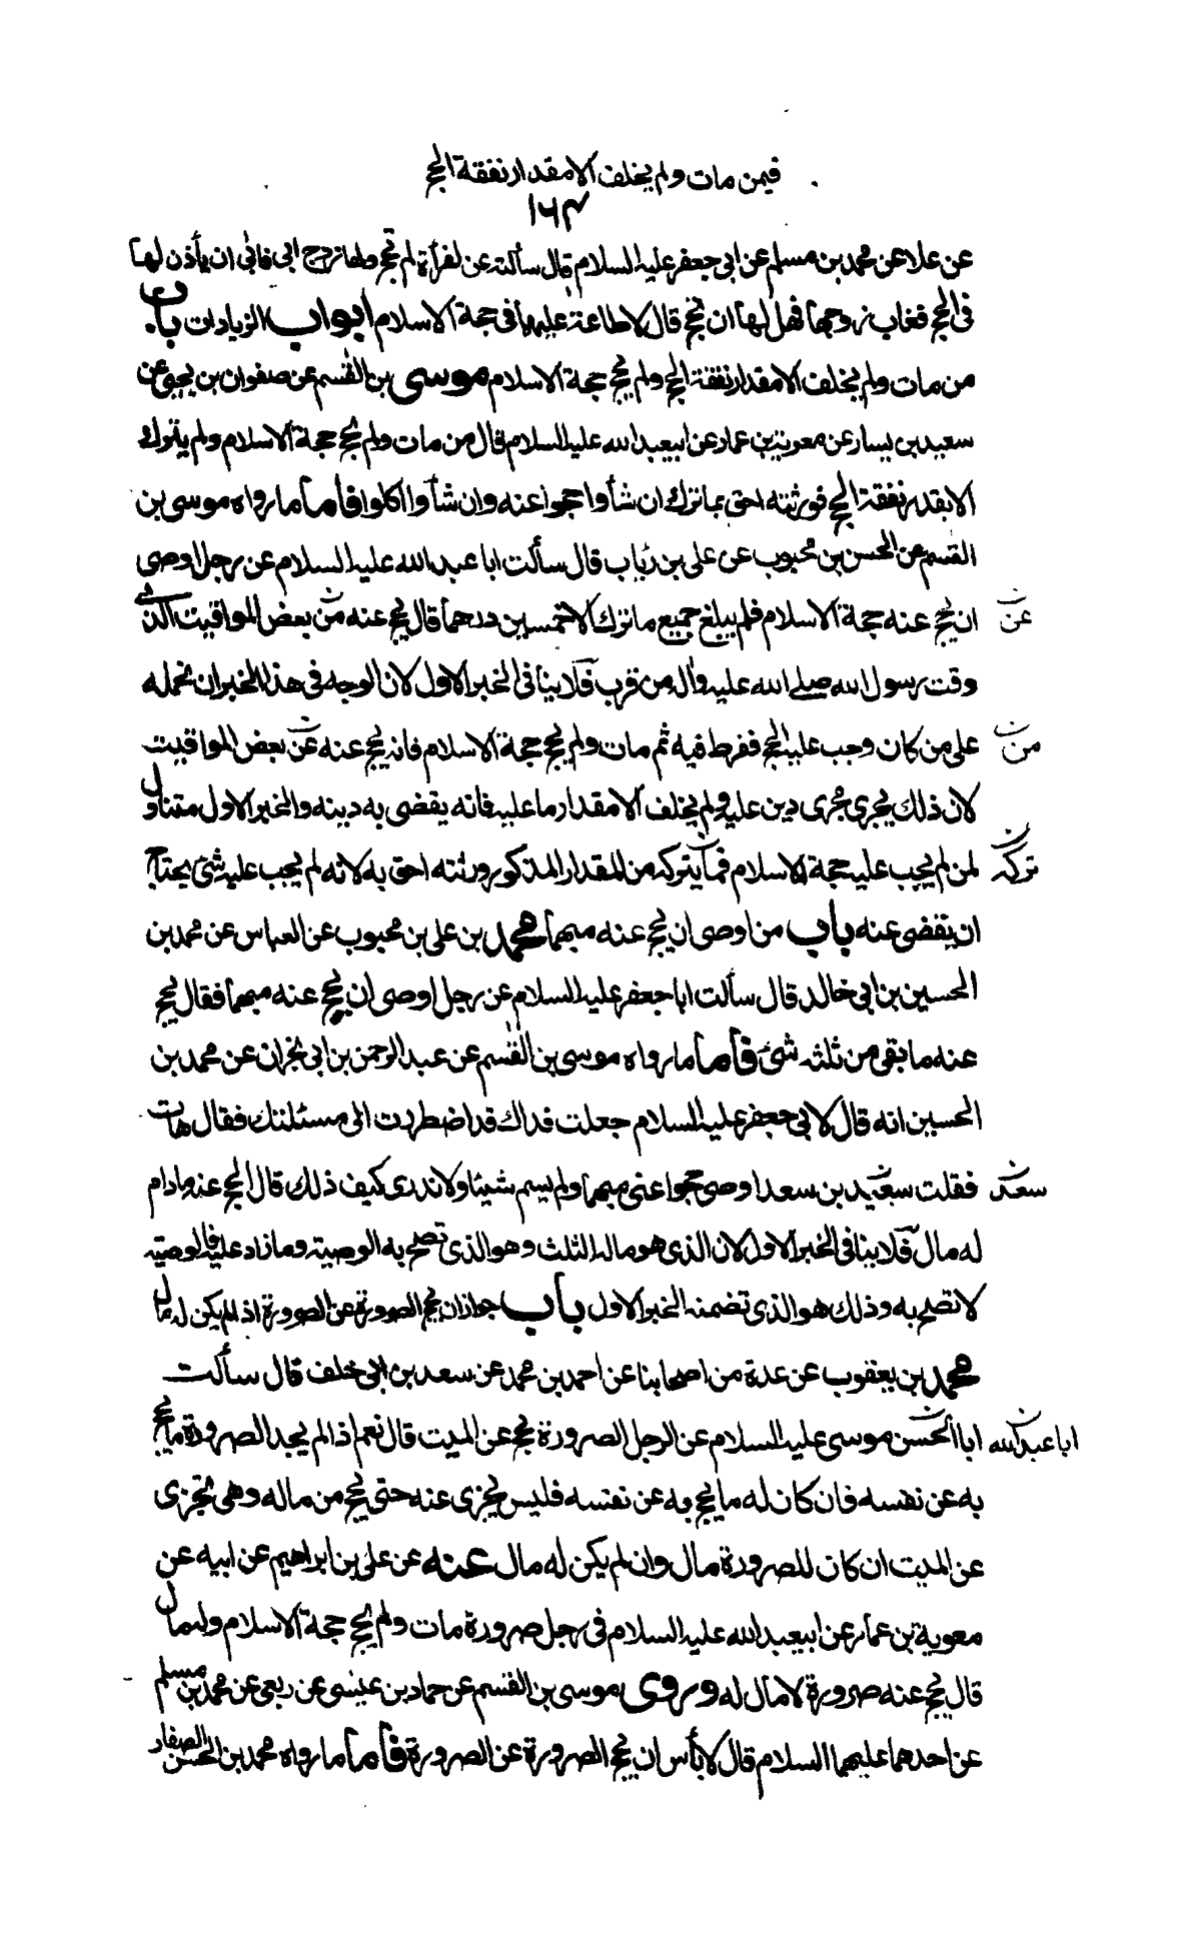 فيمن مات ولم يخلف الا مقدار نفقة الحج
١٦٣
عن علا عن محمد بن مسلم عن ابي جعفر عليه السلام قال سألته عن امرأة لم تحج ولها زوج ابى فابى ان يأذن لها
في الحج فغاب زوجها فهل لها ان تحج قال لا طاعة عليها في حجة الاسلام ابواب الزيادات باب
من مات ولم يخلف الا مقدار نفقة الحج ولم يحج حجة الاسلام موسى بن القسم عن صفوان بن يحيى عن
سعيد بن يسار عن معوية بن عمار عن ابيعبد الله عليه السلام قال من مات ولم يحج حجة الاسلام ولم يترك
الا بقدر نفقة الحج فورثته احق بما ترك ان شأوا حجوا عنه وان شأوا اكلوا فاما ما رواه موسى بن
القسم عن الحسن بن محبوب عن على بن رئاب قال سألت ابا عبد الله عليه السلام عن رجل اوصى
ان يحج عنه حجة الاسلام فلم يبلغ جميع ما ترك الا خمسين درهما قال يحج عنه من بعض المواقيت الذي
عن
وقت رسول الله صلى الله عليه واله من قرب فلا ينافى الخبر الاول لان الوجه في هذا الخبر ان نحمله
على من كان وجب عليه الحج ففرط فيه ثم مات ولم يحج حجة الاسلام فانه يحج عنه عن بعض المواقيت
من
لان ذلك يجرى مجرى دين عليه ولم يخلف الا مقدار ما عليه فانه يقضى به دينه والخبر الاول متناول
لمن لم يجب عليه حجة الاسلام فما يتركه من المقدار المذكور ورثته احق به لانه لم يجب عليه شئ يحتاج
تركه
ان يقضى عنه باب من اوصى ان يحج عنه مبهما محمد بن على بن محبوب عن العباس عن محمد بن
الحسين بن ابي خالد قال سألت ابا جعفر عليه السلام عن رجل اوصى ان يحج عنه مبهما فقال يحج
عنه ما بقى من ثلثه شئ فاما ما رواه موسى بن القسم عن عبد الرحمن بن ابي نجران عن محمد بن
الحسين انه قال لابى جعفر عليه السلام جعلت فداك قد اضطررت الى مسئلتك فقال هات
فقلت سعيد بن سعد اوصى حجوا عنى مبهما ولم يسم شيئا ولا ندرى كيف ذلك قال الحج عنه ما دام
سعد
له مال فلا ينافى الخبر الاول لان الذى هو ماله الثلث وهو الذى تصلح به الوصية وما زاد عليه فالوصية
لا تصلح به وذلك هو الذى تضمنه الخبر الاول باب جواز ان يحج الصرورة عن الصرورة اذا لم يكن له مال
محمد بن يعقوب عن عدة من اصحابنا عن احمد بن محمد عن سعد بن ابي خلف قال سألت
ابا الحسن موسى عليه السلام عن الرجل الصرورة يحج عن الميت قال نعم اذا لم يجد الصرورة ما يحج
ابا عبد الله
به عن نفسه فان كان له ما يحج به عن نفسه فليس يجزى عنه حتى يحج من ماله وهى تجزى
عن الميت ان كان للصرورة مال وان لم يكن له مال عنه عن على بن ابراهيم عن ابيه عن
معوية بن عمار عن ابيعبد الله عليه السلام في رجل صرورة مات ولم يحج حجة الاسلام وله مال
قال يحج عنه صرورة لا مال له وروى موسى بن القسم عن حماد بن عيسى عن ربعى عن محمد بن مسلم
عن احدهما عليهما السلام قال لا بأس ان يحج الصرورة عن الصرورة فاما ما رواه محمد بن الحسن الصفار